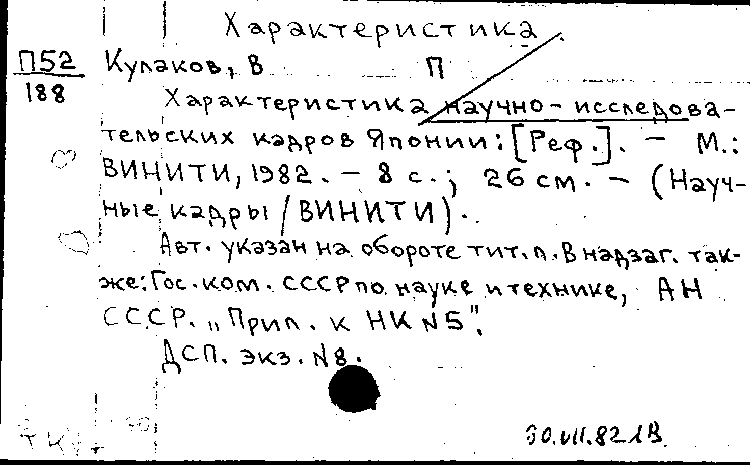 Характеристика.
П52 Кулаков, В П
188
Характеристика научно-исследова-
тельских кадров Японии: [Реф.]. — М.:
ВИНИТИ, 1982. — 8 с.; 26 см. — (Науч-
ные кадры / ВИНИТИ).
Авт. указан на обороте тит.л. В надзаг. так-
же: Гос. ком. СССР по науке и технике, АН
СССР. „Прил. к НК N5".
ДСП. экз. N8.
30.VII.82